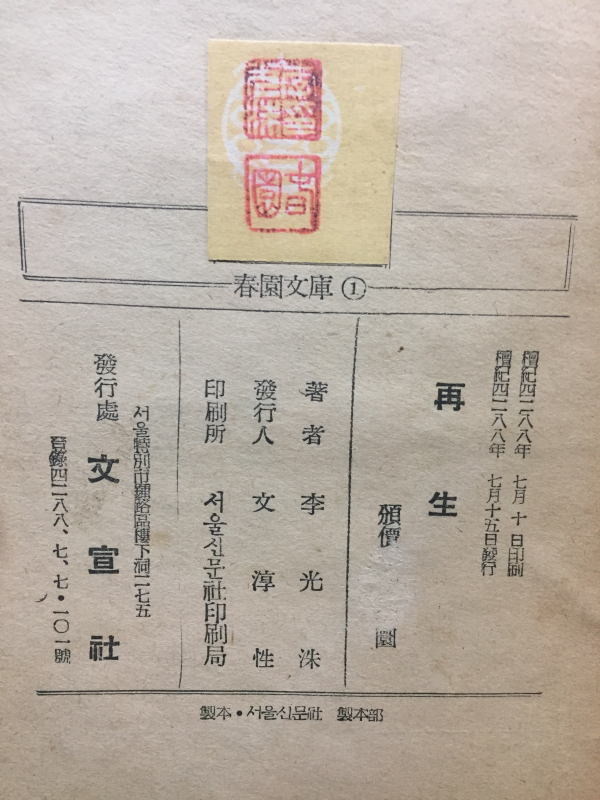 春園文庫 ①
檀紀四二八八年 七月 十 日印刷
檀紀四二八八年 七月十五日發行
再生
頒價 圜
著者 李光洙
發行人 文淳性
印刷所 서울신문社印刷局
서울特別市鍾路區樓下洞二七五
發行處 文宣社
登錄四二八八、七、七・一〇一號
製本・서울신문社 製本部